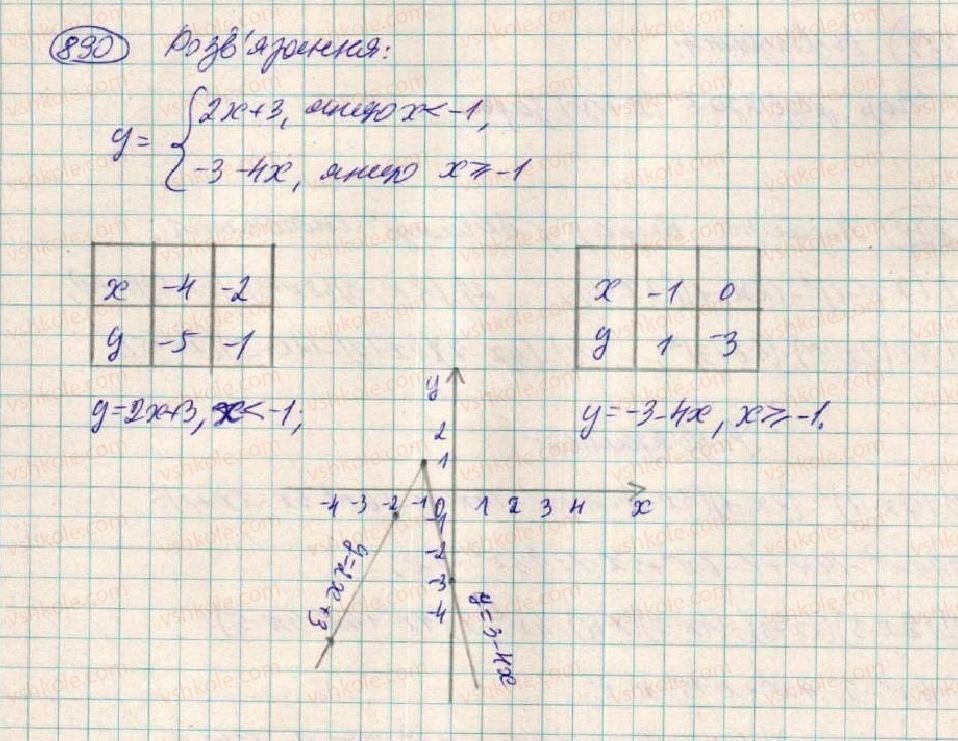 890 Розв'язання:
y= { 2x+3, якщо x < -1,
-3-4x, якщо x ⩾ -1
x -4 -2
y -5 -1
x -1 0
y 1 -3
y=2x+3, x < -1;
y=-3-4x, x ⩾ -1.
y
2
1
-4 -3 -2 -1 0 1 2 3 4 x
-1
-2
-3
-4
y=2x+3
y=-3-4x
vshkole.com